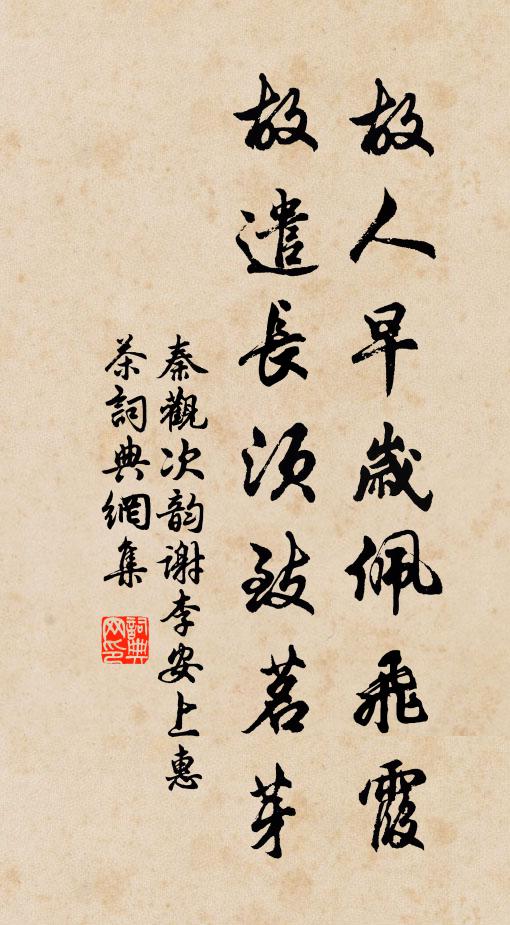 故人早歲佩飛霞
故遣長須致茗芽
秦觀次韵谢李安上惠
茶詞典網集
詞典
网印